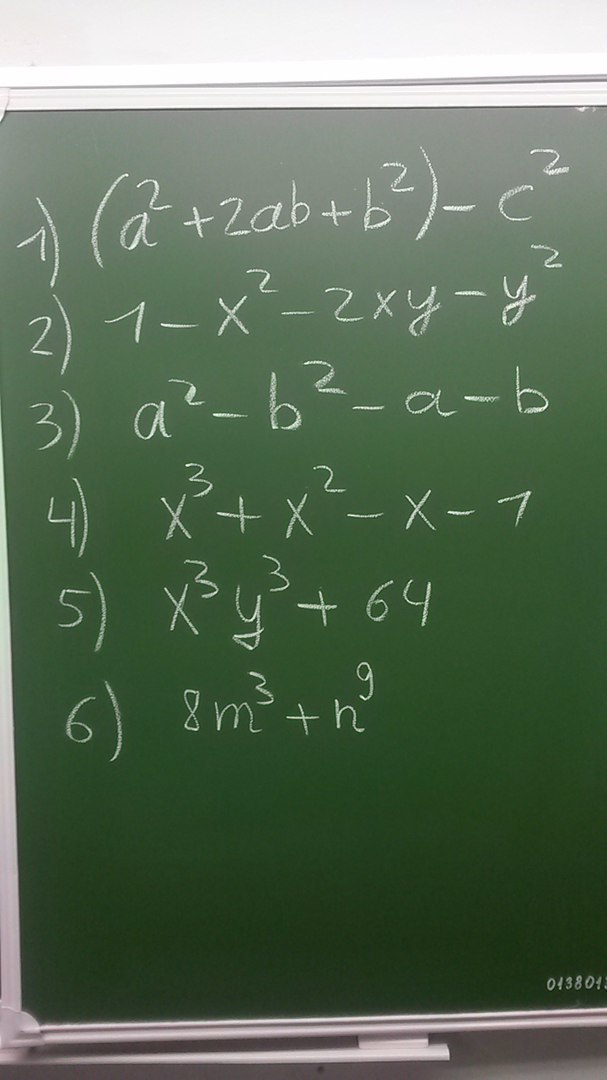 1) (a²+2ab+b²)-c²
2) 1-x²-2xy-y²
3) a²-b²-a-b
4) x³+x²-x-1
5) x³y³+64
6) 8m³+n⁹